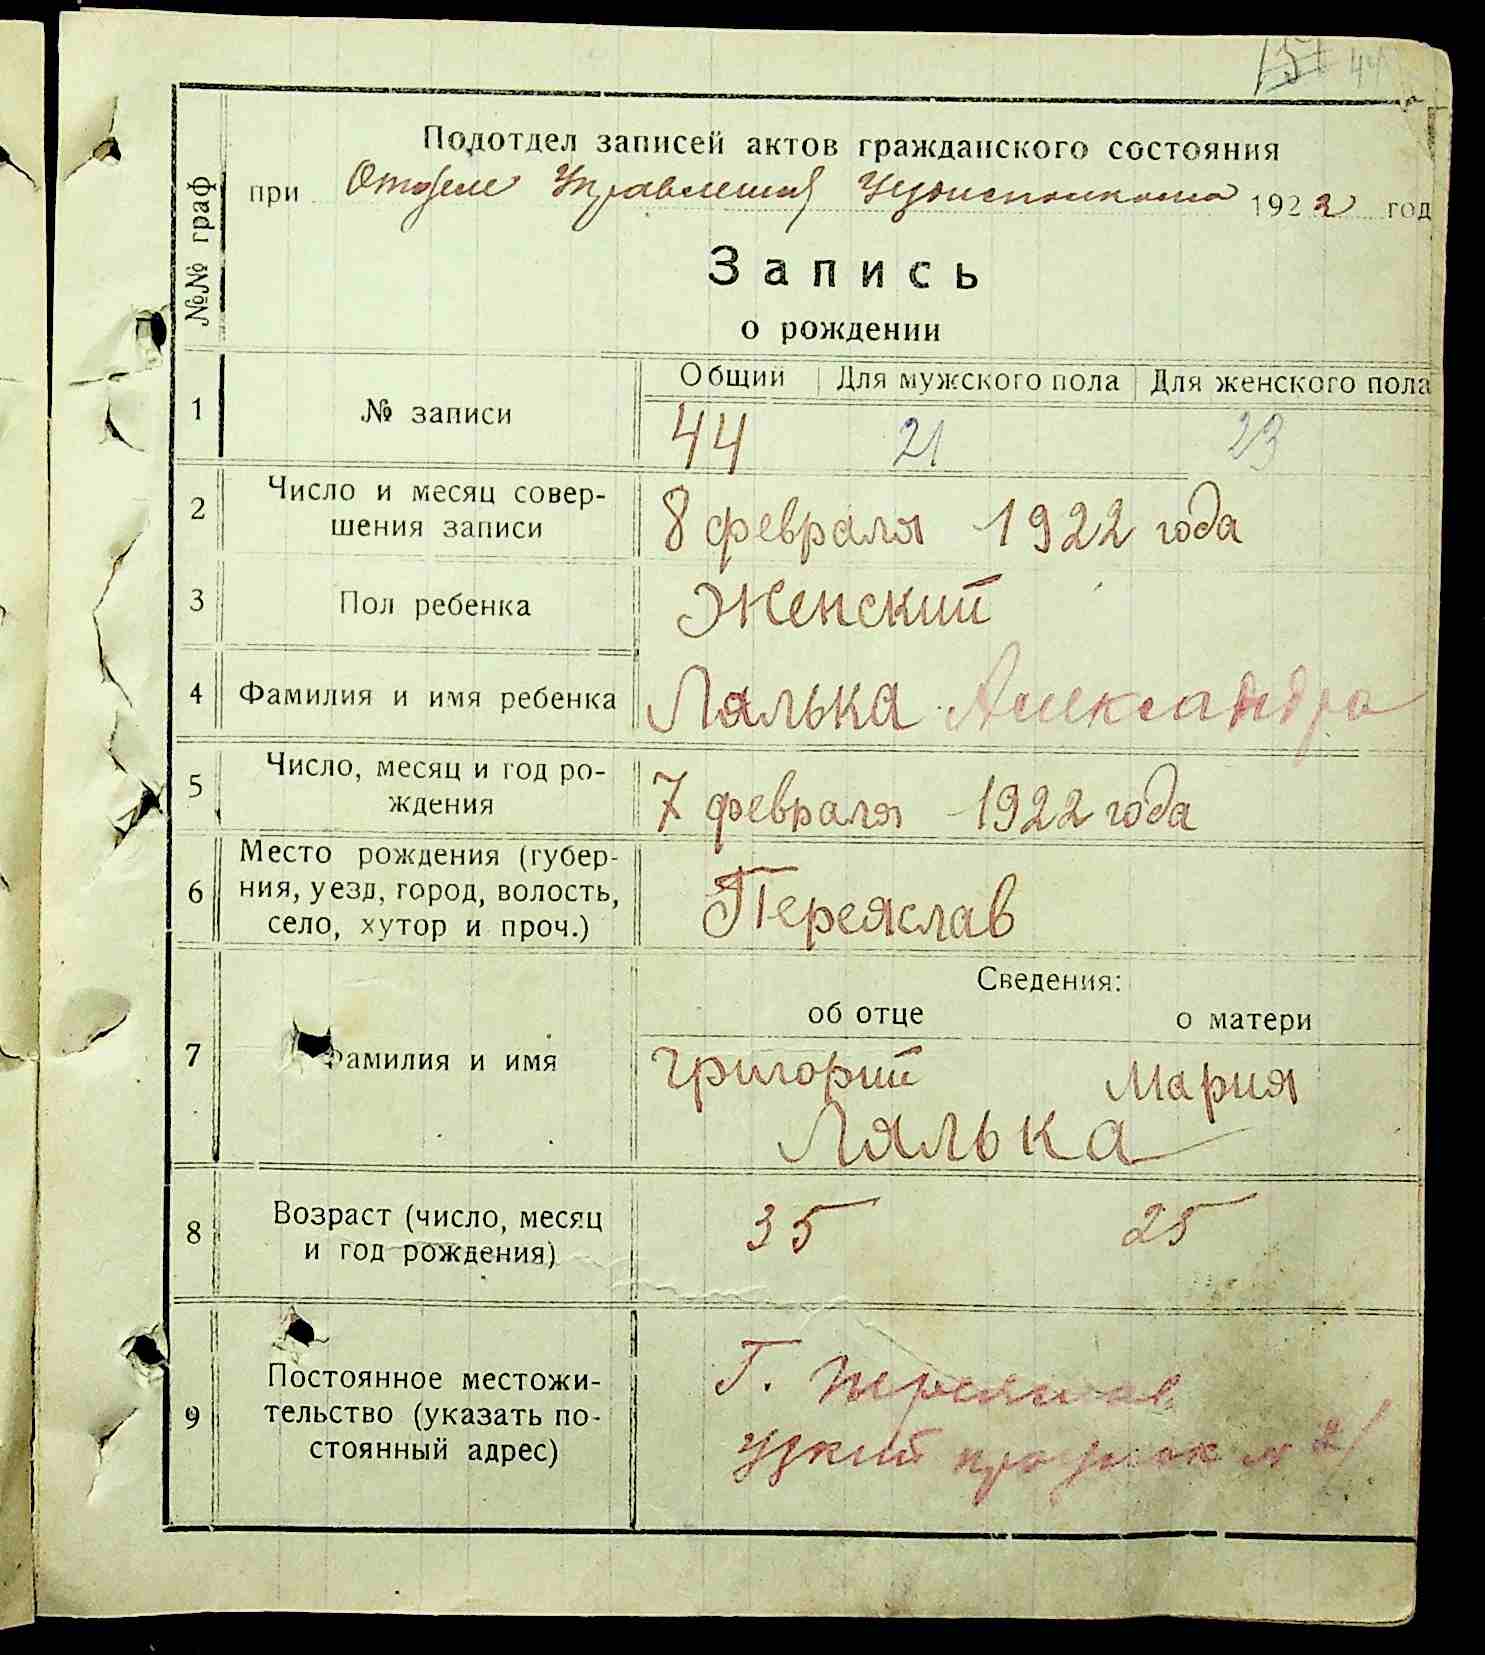 44
Подотдел записей актов гражданского состояния
при Отделе Управления Уездисполкома 1922 год
№№ граф
Запись
о рождении
Общий Для мужского пола Для женского пола
1 № записи 44 21 23
2 Число и месяц совер-
шения записи 8 февраля 1922 года
3 Пол ребенка Женский
4 Фамилия и имя ребенка Лялька Александра
5 Число, месяц и год ро-
ждения 7 февраля 1922 года
6 Место рождения (губер-
ния, уезд, город, волость,
село, хутор и проч.) Переяслав
Сведения:
об отце о матери
7 Фамилия и имя Григорий Мария
Лялька
8 Возраст (число, месяц
и год рождения) 35 25
9 Постоянное местожи-
тельство (указать по-
стоянный адрес)
Г. Переяслав
Узкий проулок №